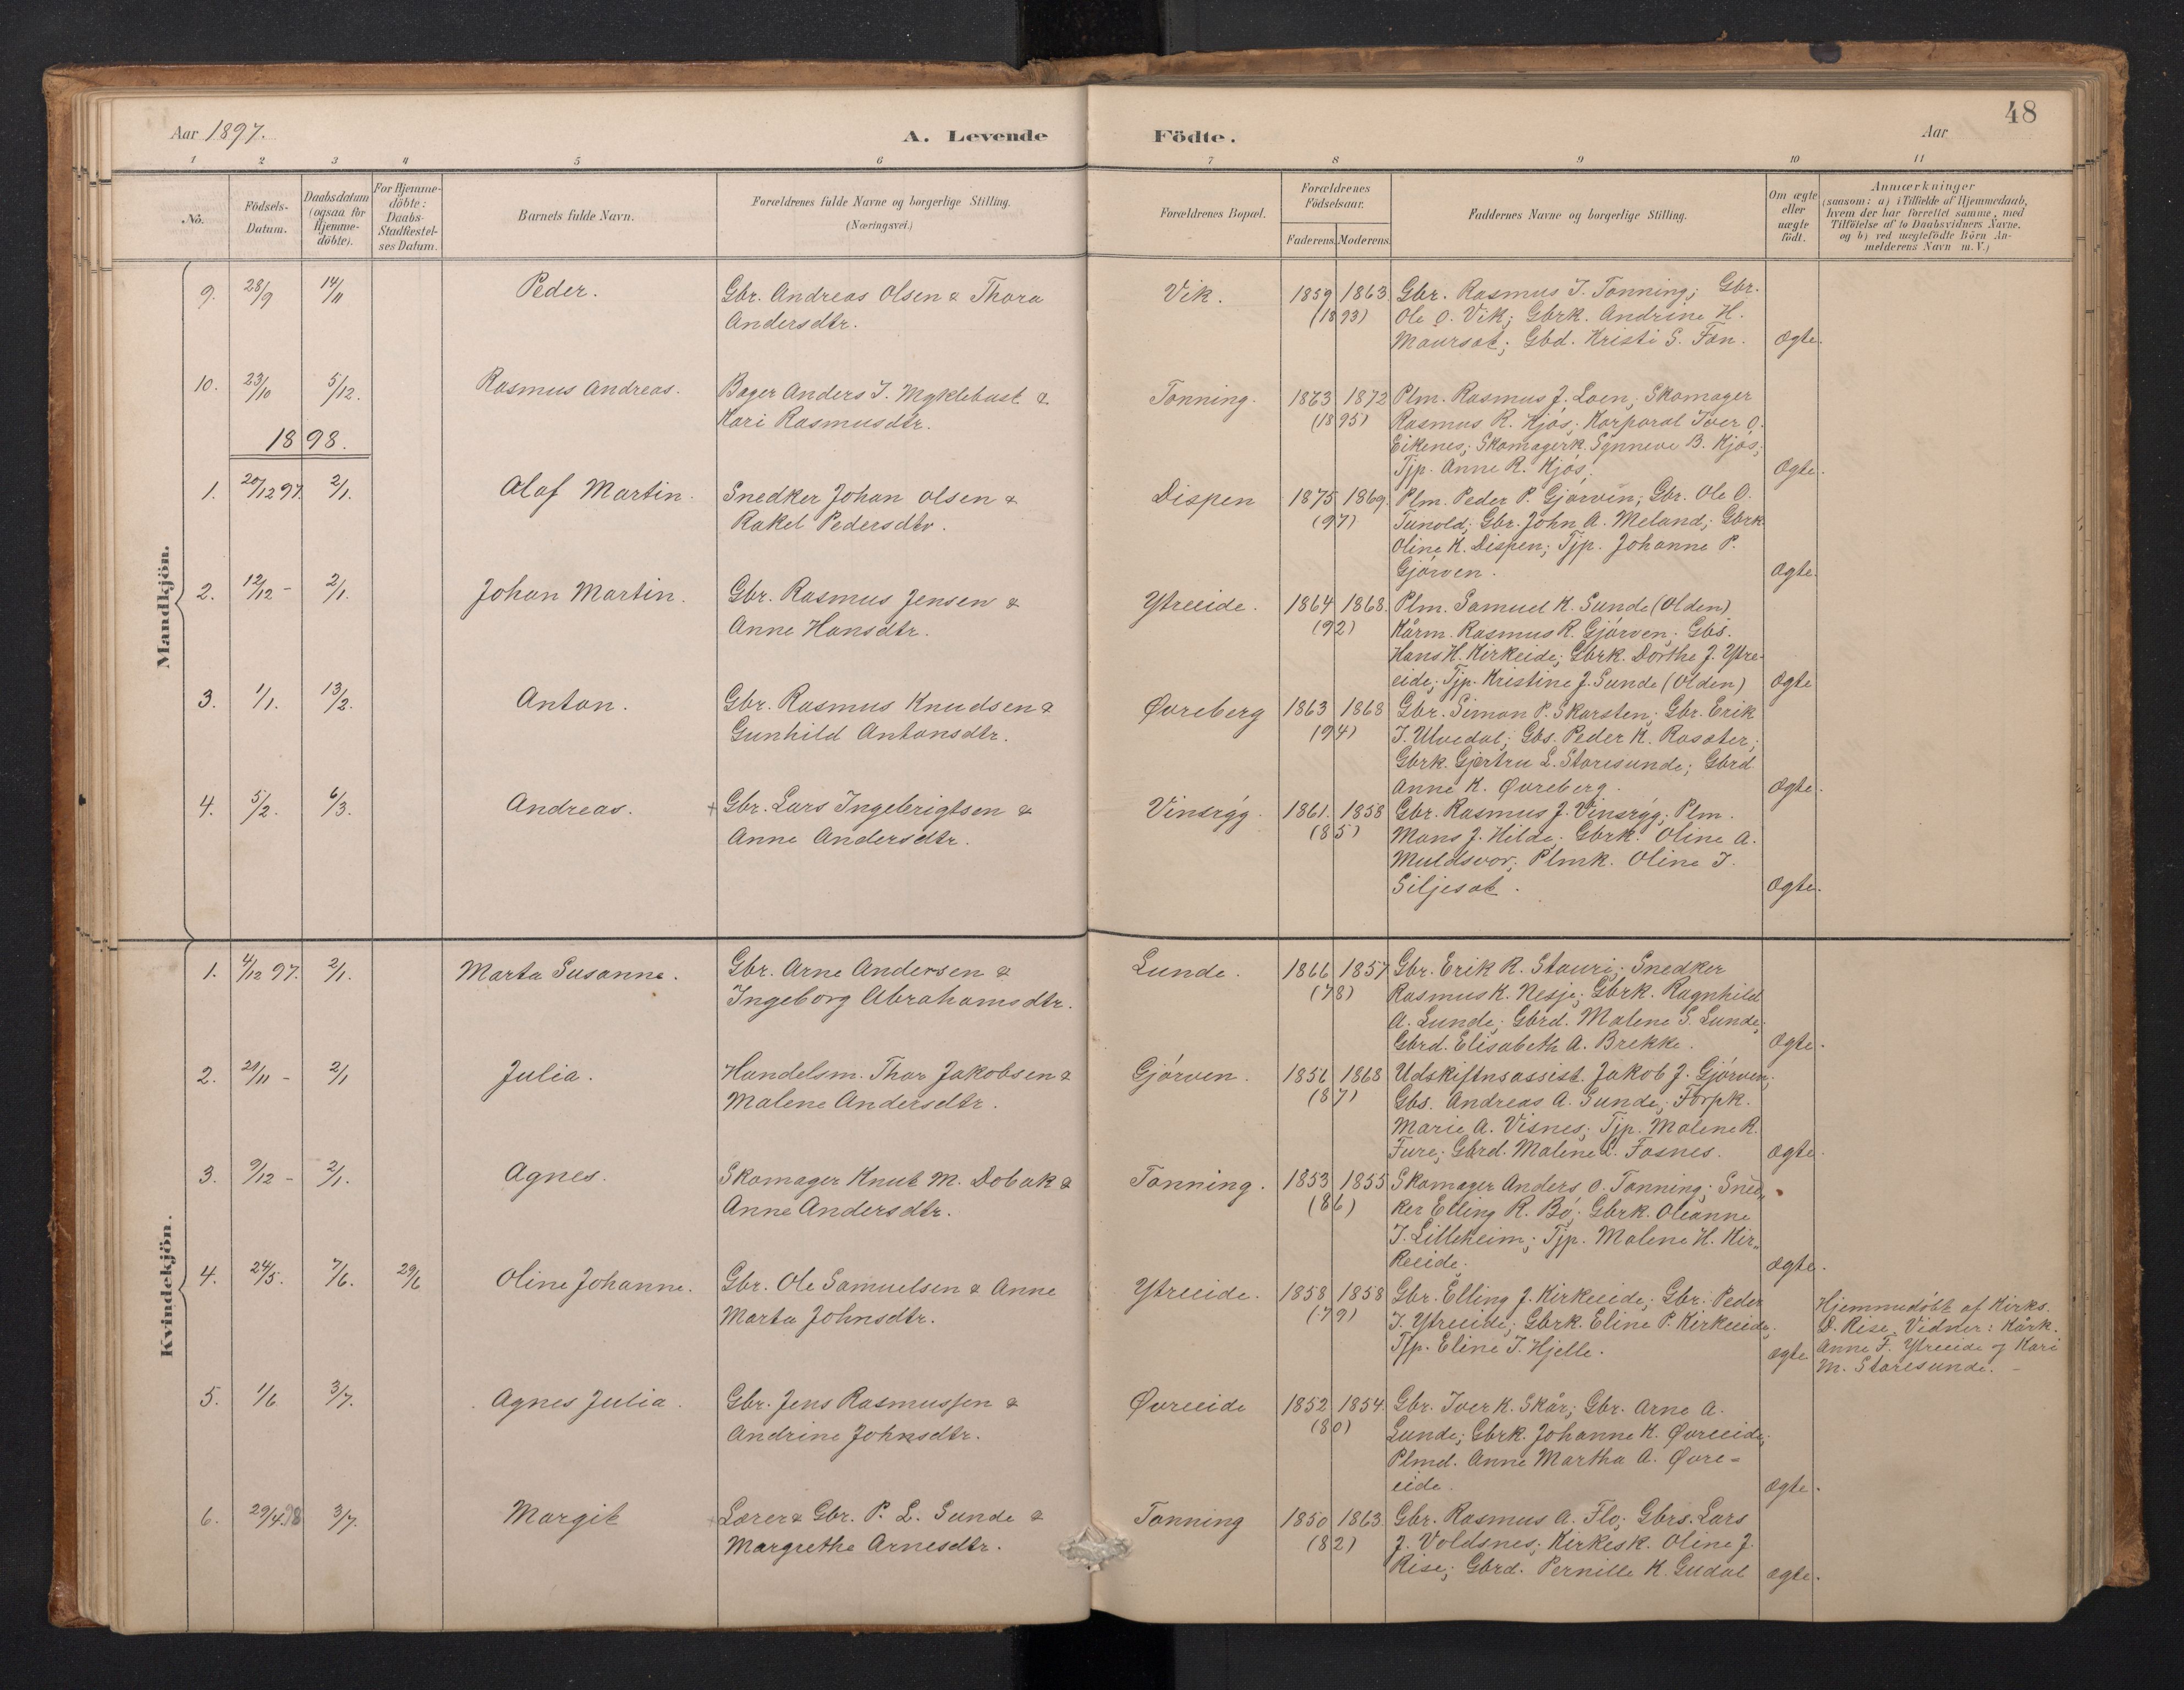 48
Aar 1897.
A. Levende Födte.
Aar
1 2 3 4 5 6 7 8 9 10 11
No.
Födsels-Datum.
Daabsdatum (ogsaa for Hjemme-döbte).
For Hjemme-döbte: Daabs-Stadfæstel-ses Datum.
Barnets fulde Navn.
Forældrenes fulde Navne og borgerlige Stilling. (Næringsvei.)
Forældrenes Bopæl.
Forældrenes Födselsaar.
Faderens. Moderens.
Faddernes Navne og borgerlige Stilling.
Om ægte eller uægte födt.
Anmærkninger
(saasom: a) i Tilfælde af Hjemmedaab,
hvem der har forrettet samme, med
Tilföielse af to Daabsvidners Navne,
og b) ved uægtefödte Börn An-
melderens Navn m. V.)
Mandkjön.
9. 28/9 14/11 Peder. Gbr. Andreas Olsen & Thora Vik. 1859 1863 Gbr. Rasmus I. Tonning; Gbr.
Andersdtr. (1893) Ole O. Vik; Gbrk. Andrine H.
Maursæt; Gbd. Kristi S. Fan. Ægte.
10. 23/10 5/12. Rasmus Andreas. Bager Anders I. Myklebust & Tonning. 1863 1872 Plm. Rasmus J. Loen; Skomager
Kari Rasmusdtr. (1895) Rasmus R. Kjøs; Korporal Iver O.
1898. Eikenes; Skomagerk. Synneve B. Kjøs;
Tjp. Anne R. Kjøs. Ægte.
1. 20/12 97. 2/1. Olaf Martin. Snedker Johan Olsen & Dispen 1875 1869. Plm. Peder P. Gjørven; Gbr. Ole O.
Rakel Pedersdtr. (97) Tunold; Gbr. John A. Meland; Gbrk.
Oline K. Dispen; Tjp. Johanne P.
Gjørven. Ægte.
2. 12/12 - 2/1. Johan Martin. Gbr. Rasmus Jensen & Ytreeide. 1864 1868. Plm. Samuel K. Sunde (Olden)
Anne Hansdtr. (92) Kårm. Rasmus R. Gjørven; Gbs.
Hans H. Kirkeide; Gbrk. Dorthe J. Ytre-
eide; Tjp. Kristine J. Sunde (Olden) Ægte
3. 1/1. 13/2. Anton. Gbr. Rasmus Knudsen & Øvreberg 1863 1868 Gbr. Simon P. Skarsten; Gbr. Erik
Gunhild Antonsdtr. (94) I. Ulvedal; Gbs. Peder K. Rosæter;
Gbrk. Gjertru L. Storesunde; Gbrd
Anne K. Øvreberg. Ægte.
4. 5/2. 6/3. Andreas. + Gbr. Lars Ingebrigtsen & Vinsrygg. 1861. 1858 Gbr. Rasmus J. Vinsrygg; Plm.
Anne Andersdtr. (85) Mons J. Hilde; Gbrk. Oline A.
Muldsvor; Plmk. Oline I.
Siljesæt. Ægte.
Kvindekjön.
1. 4/12 97. 2/1. Marta Susanne. Gbr. Arne Andersen & Lunde. 1866 1857 Gbr. Erik R. Stauri; Snedker
Ingeborg Abrahamsdtr. (78) Rasmus K. Nesje; Gbrk. Ragnhild
A. Lunde; Gbrd. Malene S. Lunde;
Gbrd. Elisabeth A. Brekke. Ægte.
2. 21/11 - 2/1 Julia. Handelsm. Thor Jakobsen & Gjørven. 1856 1868 Udskiftnsassist. Jakob J. Gjørven;
Malene Andersdtr. (87) Gbs. Andreas A. Sunde; Forpk.
Marie A. Visnes; Tjp. Malene R.
Fure; Gbrd. Malene L. Fosnes. Ægte.
3. 9/12 - 2/1. Agnes. Skomager Knut M. Dobak & Tonning. 1853 1855 Skomager Anders O. Tonning; Sned-
Anne Andersdtr. (86) ker Elling R. Bø; Gbrk. Oleanne
I. Lilleheim; Tjp. Malene H. Kir-
keeide. Ægte.
4. 24/5. 7/6. 29/6 Oline Johanne. Gbr. Ole Samuelsen & Anne Ytreeide. 1858 1858 Gbr. Elling J. Kirkeeide; Gbr. Peder Hjemmedøbt af Kirks.
Marta Johnsdtr. (79) I. Ytreeide; Gbrk. Eline P. Kirkeeide; D. Rise. Vidner: Kårk.
Tjp. Eline I. Hjelle. Ægte Anne F. Ytreeide og Kari
M. Storesunde. -
5. 1/6 3/7. Agnes Julia. Gbr. Jens Rasmussen & Øvreeide 1852 1854. Gbr. Iver K. Skår; Gbr. Arne A.
Andrine Johnsdtr. (80) Lunde; Gbrk. Johanne K. Øvreeide;
Plmd. Anne Martha A. Øvre-
eide. Ægte.
6. 29/4.98 3/7. Margit + Lærer & Gbr. P. L. Sunde & Tonning 1850 1863. Gbr. Rasmus A. Flo; Gbrs. Lars
Margrethe Arnesdtr. (82) J. Voldsnes; Kirkesk. Oline J.
Rise; Gbrd. Pernille K. Gudal Ægte.